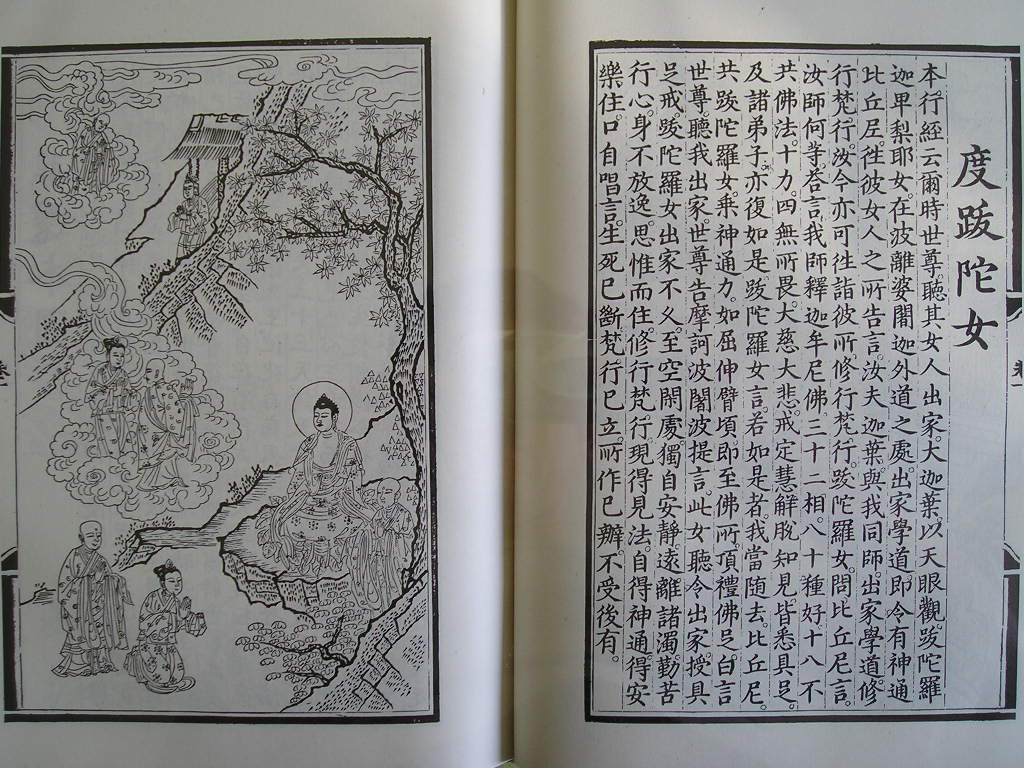 度跋陀女
本行經云爾時世尊。聽其女人出家。大迦葉。以天眼觀。跋陀羅
迦卑梨耶女。在波離婆闍迦外道之處。出家學道。即令有神通
比丘尼。往彼女人之所告言。汝夫迦葉。與我同師。出家學道。修
行梵行。汝今亦可往詣彼所修行梵行。跋陀羅女。問比丘尼言。
汝師何等。答言。我師釋迦牟尼佛。三十二相。八十種好。十八不
共佛法。十力。四無所畏。大慈大悲。戒定慧解脫知見。皆悉具足。
及諸弟子。亦復如是。跋陀羅女言。若如是者。我當隨去。比丘尼。
共跋陀羅女。乘神通力。如屈伸臂頃。即至佛所。頂禮佛足。白言
世尊。聽我出家。世尊告摩訶波闍波提言。此女聽令出家。授具
足戒。跋陀羅女出家不久。至空閒處。獨自安靜。遠離諸濁。勤苦
行心。身不放逸。思惟而住。修行梵行。現得見法。自得神通。得安
樂住。口自唱言。生死已斷。梵行已立。所作已辦。不受後有。